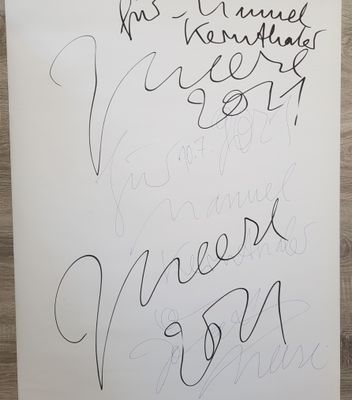 für Manuel
Kernthaler
Meese
2021!
für
10.7.
Manuel
Kernthaler
Meese
2021
Meese